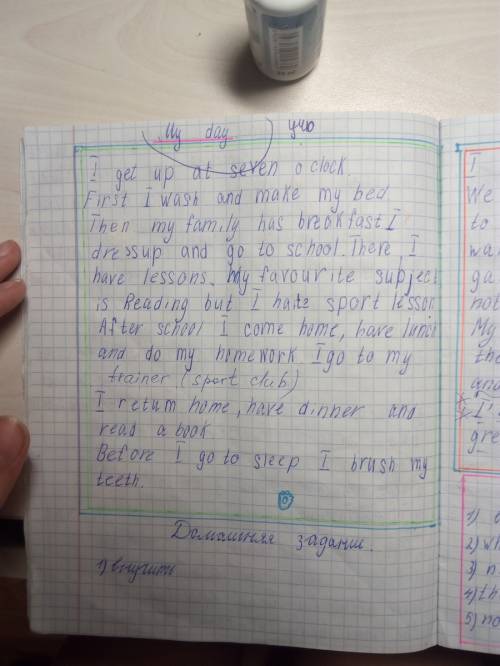 My day учю
I get up at seven o clock.
First I wash and make my bed
Then my family has breakfast I
dressup and go to school. There I
have lessons. My favourite subject
is Reading but I hate sport lesson
After school I come home, have lunch
and do my homework I go to my
trainer (sport club)
I return home, have dinner and
read a book
Before I go to sleep I brush my
teeth.
Домашняя задание.
1) выучить
I
We
to
wa
ga
not
My
the
and
I'
gre
1)
2) wh
3) n
4) th
5) no